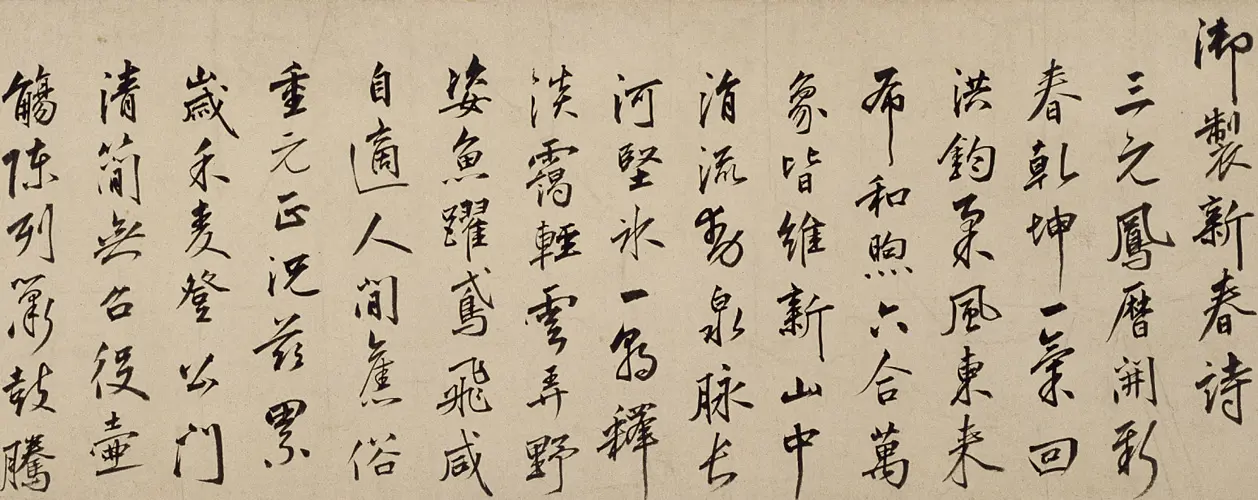 御製新春詩
三元鳳曆開新
春乾坤一氣回
洪鈞柔風東來
布和煦六合萬
象皆維新山中
涓流動泉脉長
河堅冰一朝釋
淡靄輕雲弄野
姿魚躍鳶飛咸
自適人間舊俗
重元正況茲累
歲禾麥登公門
清簡無役壺
觴陳列簫鼓騰